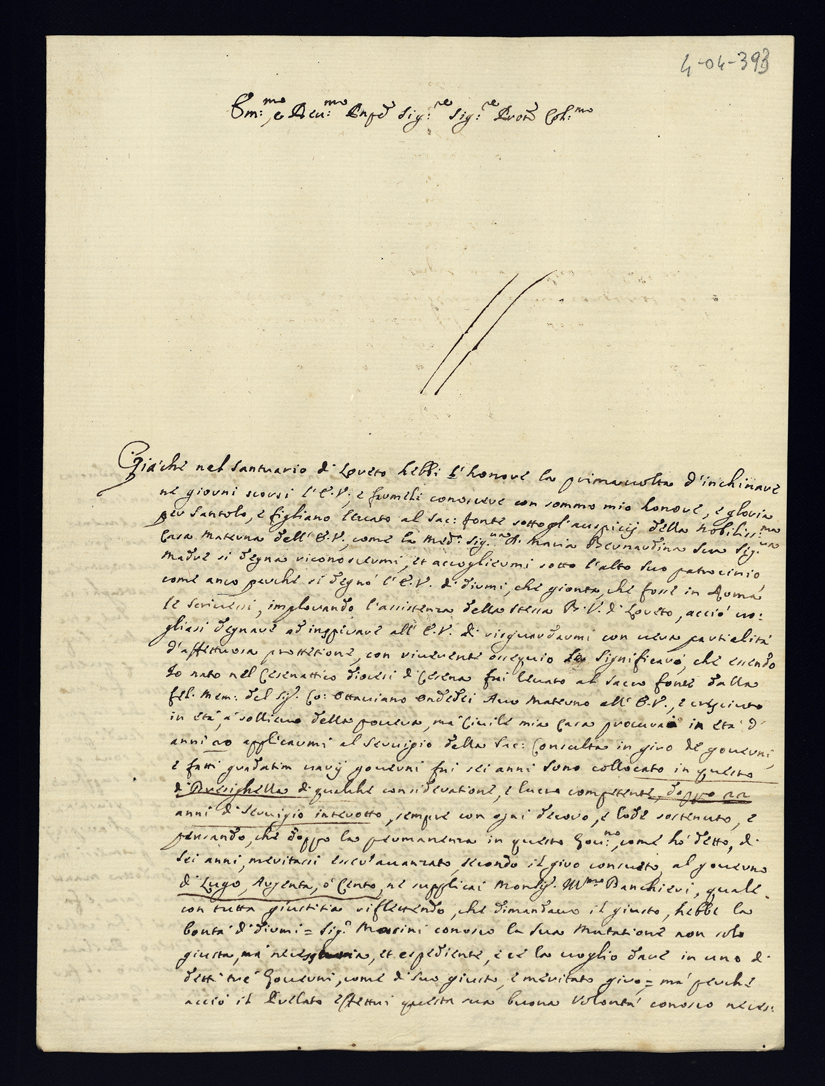 4-04-393
Em:mo, e Reu:mo Pnpē Sig:re Sig:re Pron̄e Col:mo
Giache nel Santuario di Loreto hebbi l'honore la prima volta d'inchinare
ne giorni scorsi l'E.V., e farmeli conoscere con sommo mio honore, e gloria
per Santolo, e figliano leuato al Sac: fonte sotto gl'auspicij della Nobiliss:ma
Casa Materna dell'E.V., come la Med:ma Sig:ra D. Maria Bernardina Sua Sig:ra
Madre si degna riconoscermi, et accogliermi sotto l'alto suo patrocinio
come anco perche si degnò l'E.V. di dirmi, che gionto, che fosse in Roma
le scriuessi, implorando l'assistenza della stessa B.V. di Loreto, acciò uo-
gliasi degnare ad inspirare all'E.V. di risguardarmi con uera partialità
d'affettuosa protettione, con riuerente ossequio le significarò, che essendo
Io nato nel Cesenattico diocesi di Cesena fui leuato al Sacro fonte dalla
fel: Mem: del Sig: Co: Ottauiano Ondedei Auo Materno all'E.V., e cresciuto
in età, a sollieuo della pouera, mà Ciuile mia Casa procurai in età d'
anni 20 applicarmi al Seruigio della Sac: Consulta in giro de gouerni,
e fatti gradatim uarij gouerni fui sei anni sono collocato in questo
di Brisighella di qualche consideratione, e lucro competente, doppo 22
anni di Seruigio interotto, sempre con ogni decoro, e lode sostenuto, e
pensando, che doppo la permanenza in questo Gou:no, come hò detto, di
sei anni, meritassi esser'auanzato secondo il giro consueto, al gouerno
di Lugo, Argenta, ò Cento, ne supplicai Monsig: Ill:mo Banchieri, quale
con tutta giustitia riflettendo, che dimandauo il giusto, hebbe la
bontà di dirmi = Sig: Masini conosco la sua Mutatione non solo
giusta, mà necessaria, et espediente, e ce la uoglio dare in uno di
detti trè Gouerni, come di suo giusto, e meritato giro = mà perche
acciò il Prelato effettui questa sua buona Volontà conosco neces-